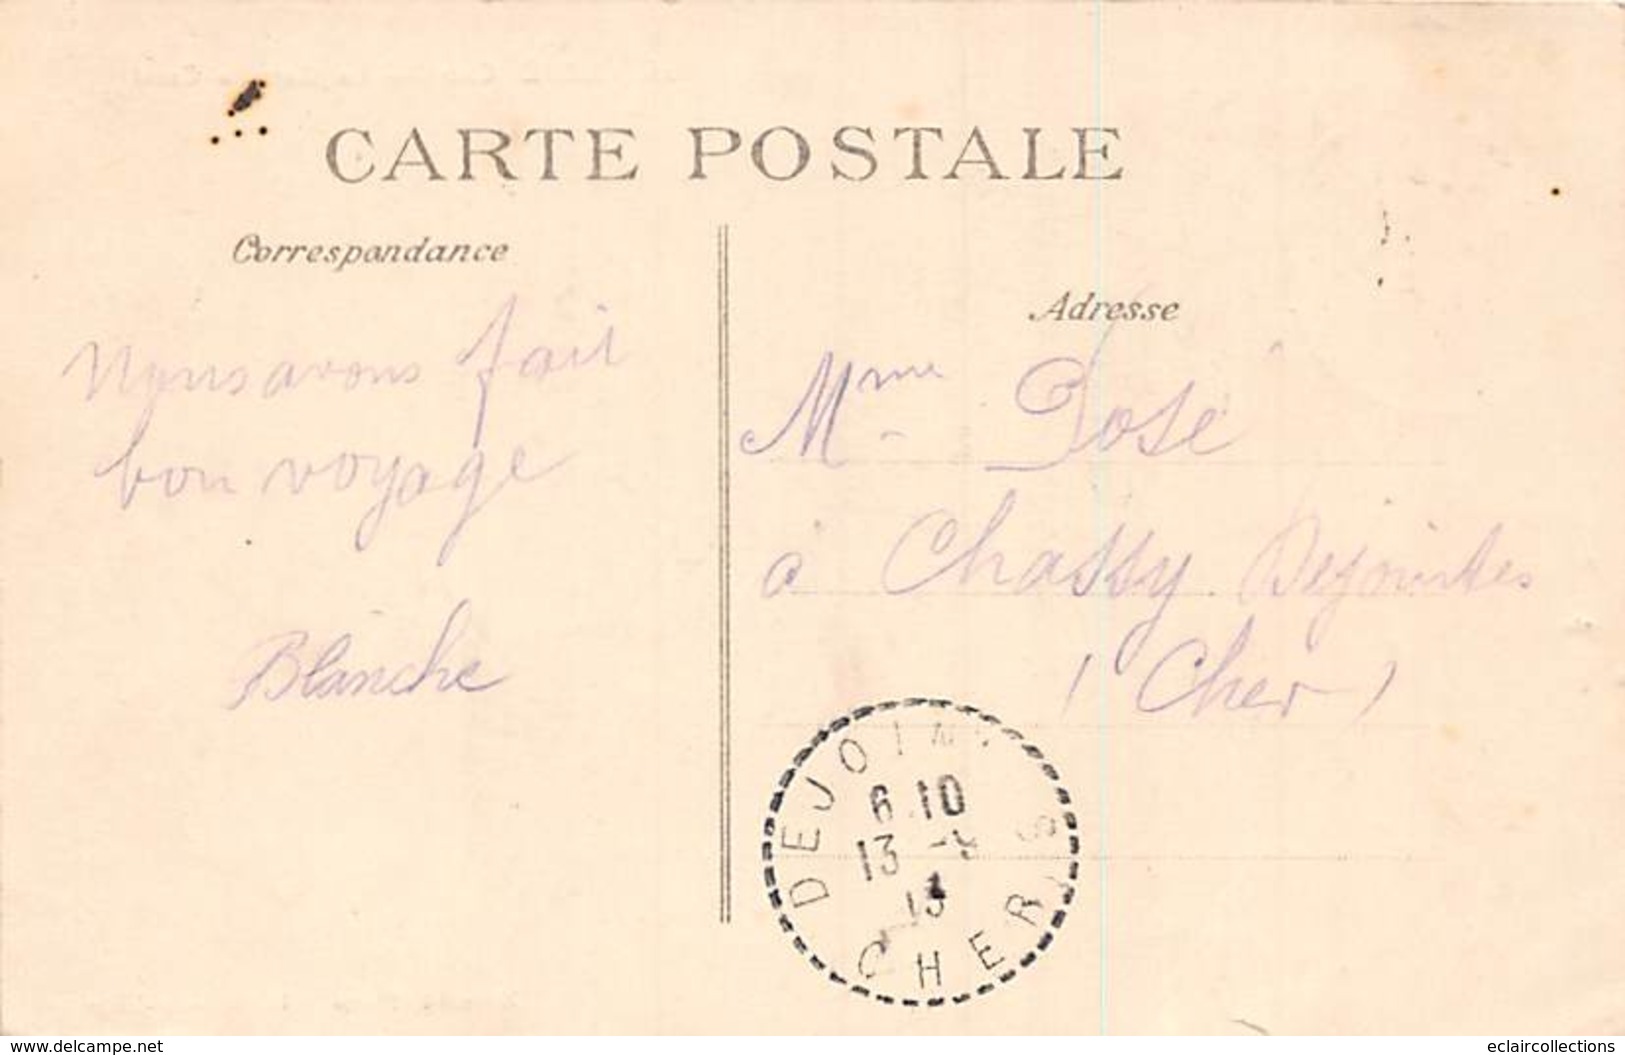 CARTE POSTALE
Correspondance
Adresse
Nous avons fait
bon voyage
Blanche
Mme José
à Chassy Dejointes
(Cher)
DEJOINTES
6 10
13 -9
13
CHER
www.delcampe.net
eclaircollections